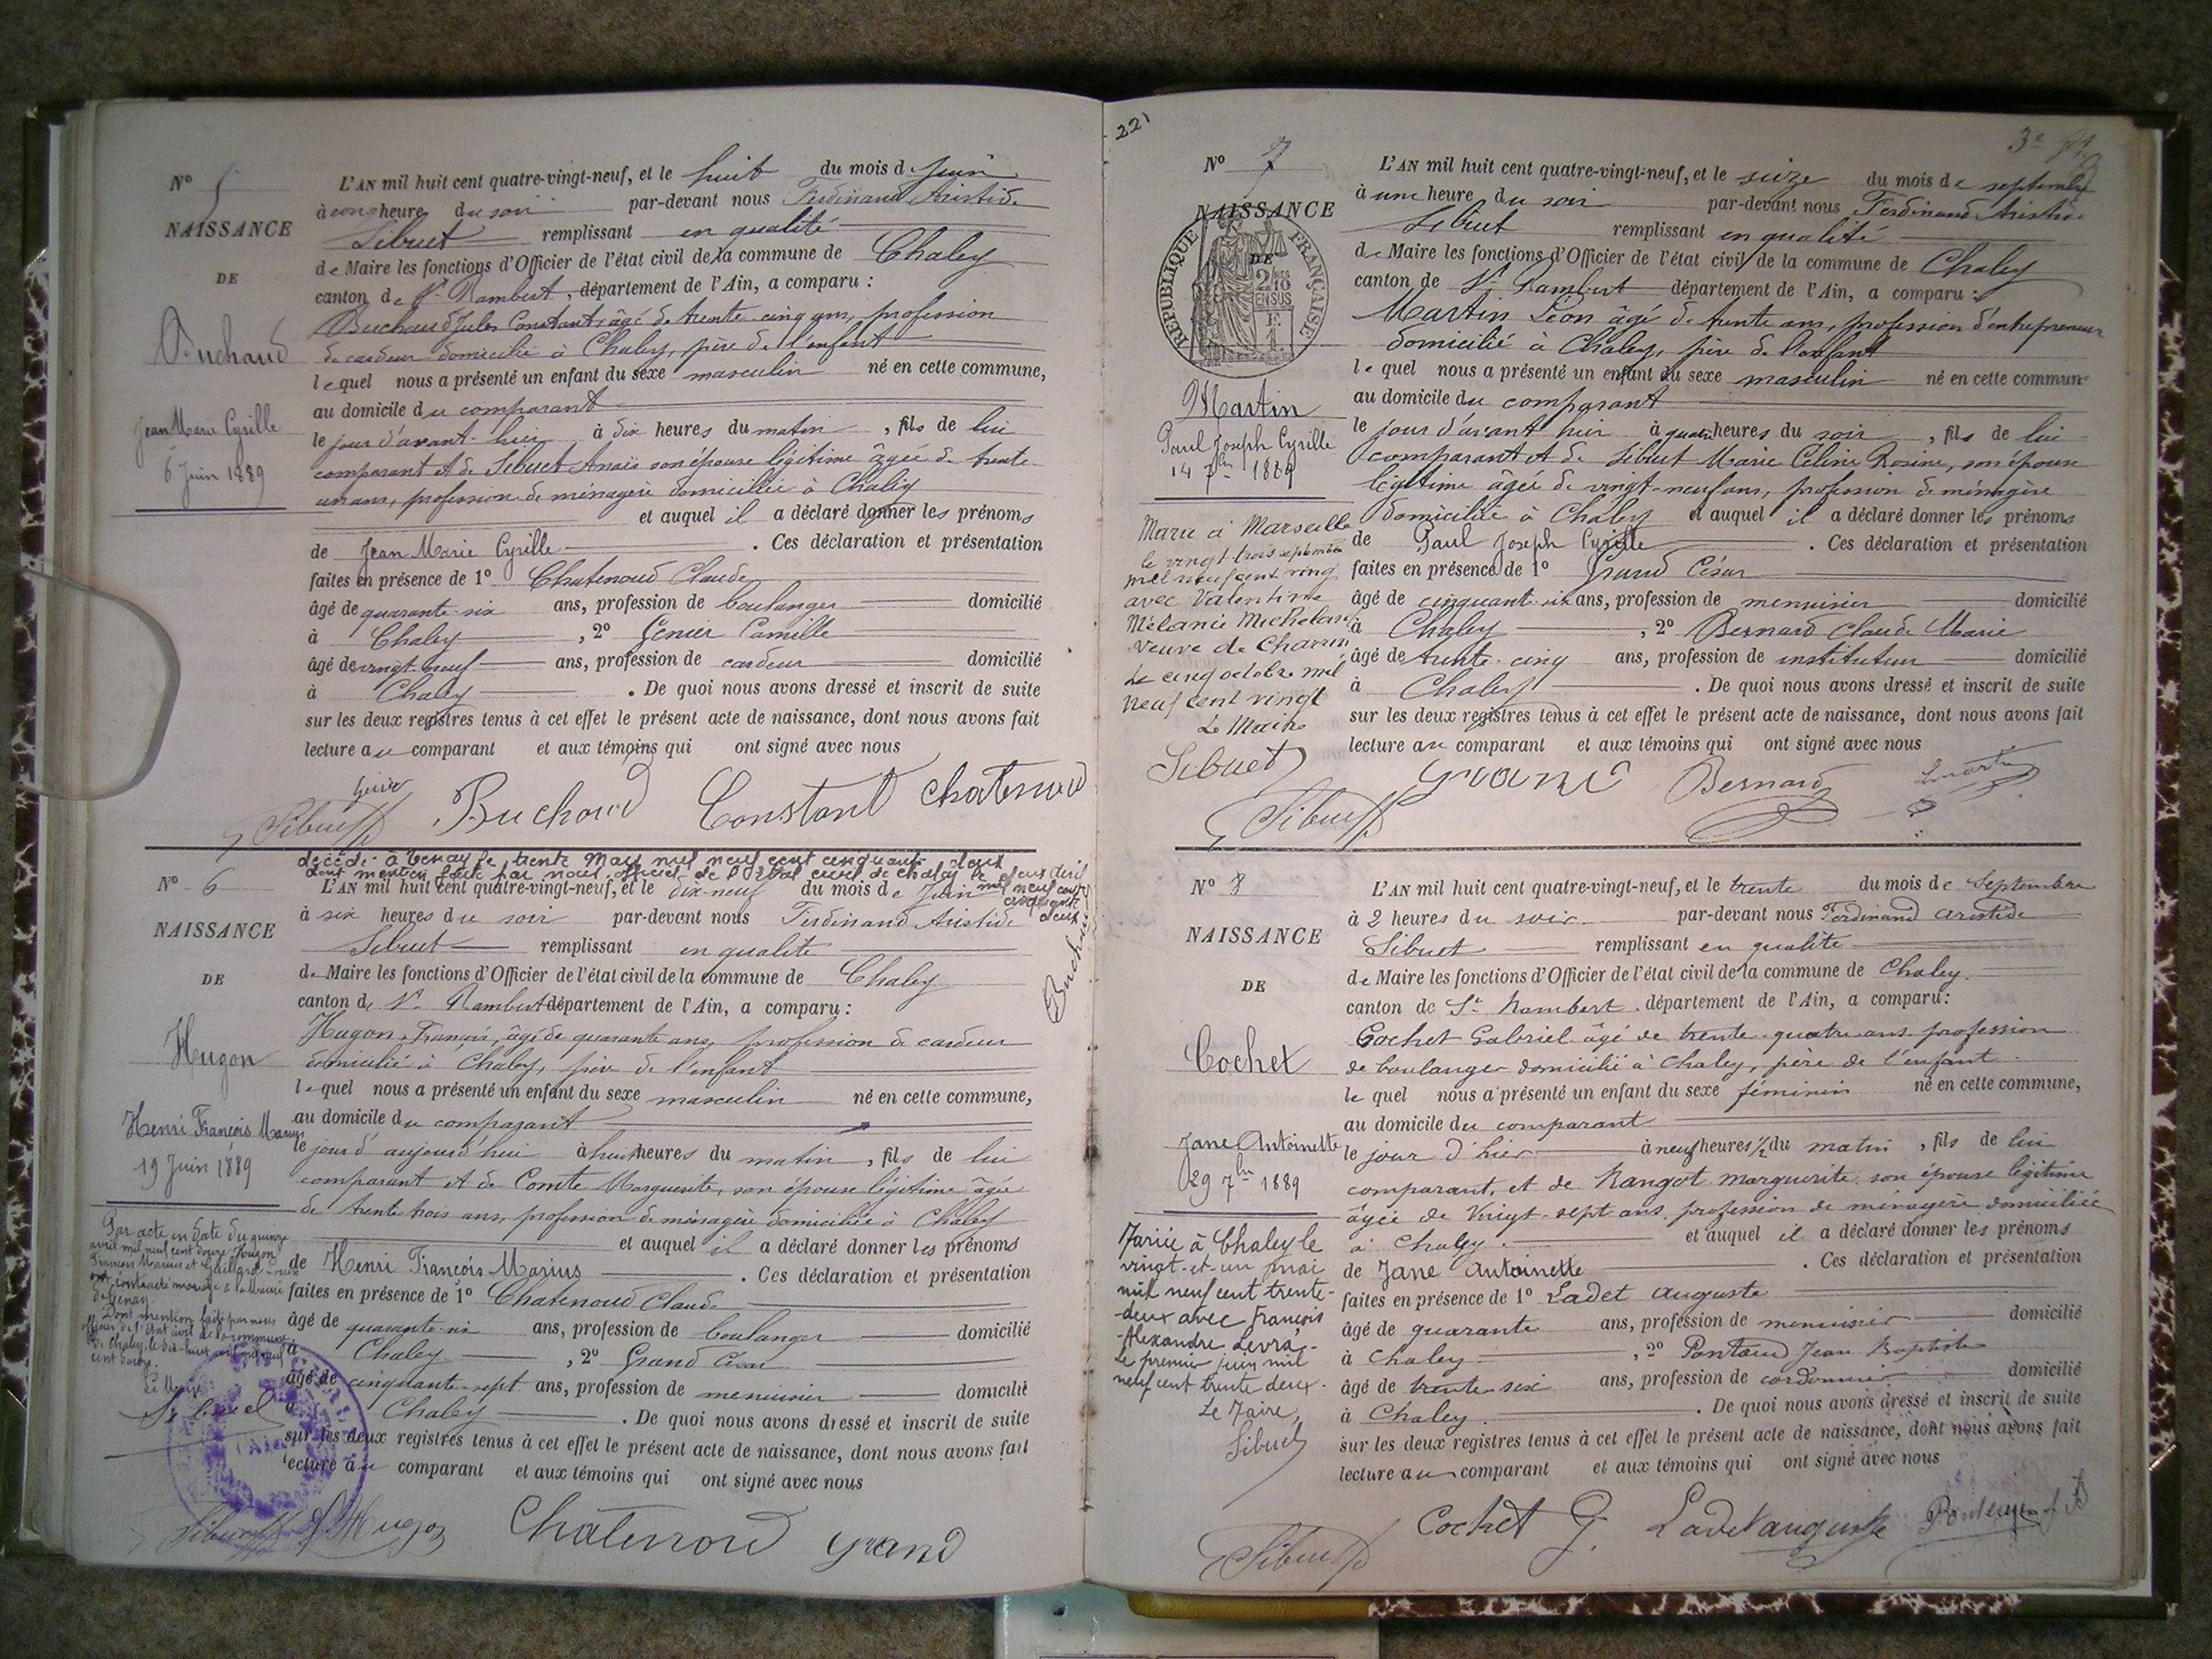 N° 5
NAISSANCE
DE
Buchaud
Jean Marie Cyrille
6 Juin 1889
L'AN mil huit cent quatre-vingt-neuf, et le huit du mois de Juin
à cinq heure du soir par-devant nous Ferdinand Aristide
Sibuet remplissant en qualité
de Maire les fonctions d'Officier de l'état civil de la commune de Chaley
canton de St Rambert, département de l'Ain, a comparu :
Buchaud Jules Constant, âgé de trente-cinq ans, profession
de cardeur domicilié à Chaley, père de l'enfant
lequel nous a présenté un enfant du sexe masculin né en cette commune,
au domicile du comparant
le jour d'avant-hier à dix heures du matin, fils de lui
comparant et de Sibuet Anaïs son épouse légitime âgée de trente
un ans, profession de ménagère domiciliée à Chaley
et auquel il a déclaré donner les prénoms
de Jean Marie Cyrille. Ces déclaration et présentation
faites en présence de 1° Chatenoud Claude
âgé de quarante-six ans, profession de boulanger domicilié
à Chaley, 2° Genier Camille
âgé de vingt-neuf ans, profession de cardeur domicilié
à Chaley. De quoi nous avons dressé et inscrit de suite
sur les deux registres tenus à cet effet le présent acte de naissance, dont nous avons fait
lecture au comparant et aux témoins qui ont signé avec nous
Sibuet Buchaud Constant Chatenoud
décédé à Tenay le trente Mars mil neuf cent cinquante deux
dont mention faite par nous officier de l'état civil de Chaley le deux avril
mil neuf cent
cinquante
deux
N° 6
NAISSANCE
DE
Hugon
Henri François Marius
19 Juin 1889
L'AN mil huit cent quatre-vingt-neuf, et le dix-neuf du mois de Juin
à six heures du soir par-devant nous Ferdinand Aristide
Sibuet remplissant en qualité
de Maire les fonctions d'Officier de l'état civil de la commune de Chaley
canton de St Rambert département de l'Ain, a comparu :
Hugon François, âgé de quarante ans, profession de cardeur
domicilié à Chaley, père de l'enfant
lequel nous a présenté un enfant du sexe masculin né en cette commune,
au domicile du comparant
le jour d'aujourd'hui à huit heures du matin, fils de lui
comparant et de Comte Marguerite, son épouse légitime âgée
de trente trois ans, profession de ménagère domiciliée à Chaley
et auquel il a déclaré donner les prénoms
de Henri François-Marius. Ces déclaration et présentation
faites en présence de 1° Chatenoud Claude
âgé de quarante-six ans, profession de boulanger domicilié
à Chaley, 2° Grand César
âgé de cinquante-sept ans, profession de menuisier domicilié
à Chaley. De quoi nous avons dressé et inscrit de suite
sur les deux registres tenus à cet effet le présent acte de naissance, dont nous avons fait
lecture au comparant et aux témoins qui ont signé avec nous
Par acte en date du quinze
avril mil neuf cent douze Hugon
François Marius et Gaillard
ont contracté mariage à la Mairie
de Tenay.
Dont mention faite par nous
officier de l'état civil de la commune
de Chaley, le dix-huit avril mil neuf
cent douze.
Le Maire
Sibuet
Sibuet Hugon Chatenoud Grand
221
N° 7
NAISSANCE
DE
RÉPUBLIQUE FRANÇAISE
Martin
Paul Joseph Cyrille
14 7bre 1889
L'AN mil huit cent quatre-vingt-neuf, et le seize du mois de septembre
à une heure du soir par-devant nous Ferdinand Aristide
Sibuet remplissant en qualité
de Maire les fonctions d'Officier de l'état civil de la commune de Chaley
canton de St Rambert département de l'Ain, a comparu :
Martin Léon âgé de trente ans, profession d'entrepreneur
domicilié à Chaley, père de l'enfant
lequel nous a présenté un enfant du sexe masculin né en cette commune
au domicile du comparant
le jour d'avant hier à quatre heures du soir, fils de lui
comparant et de Sibuet Marie Céline Rosine, son épouse
légitime âgée de vingt-neuf ans, profession de ménagère
domiciliée à Chaley et auquel il a déclaré donner les prénoms
de Paul Joseph Cyrille. Ces déclaration et présentation
faites en présence de 1° Grand César
âgé de cinquant-six ans, profession de menuisier domicilié
à Chaley, 2° Bernard Claude Marie
âgé de trente-cinq ans, profession de instituteur domicilié
à Chaley. De quoi nous avons dressé et inscrit de suite
sur les deux registres tenus à cet effet le présent acte de naissance, dont nous avons fait
lecture au comparant et aux témoins qui ont signé avec nous
Marié à Marseille
le vingt trois septembre
mil neuf cent vingt
avec Valentine
Mélanie
veuve de
Le cinq octobre mil
neuf cent vingt
Le Maire
Sibuet
Sibuet Grand Bernard Martin
N° 8
NAISSANCE
DE
Cochet
Jane Antoinette
29 7bre 1889
L'AN mil huit cent quatre-vingt-neuf, et le trente du mois de Septembre
à 2 heures du soir par-devant nous Ferdinand aristide
Sibuet remplissant en qualité
de Maire les fonctions d'Officier de l'état civil de la commune de Chaley.
canton de St Rambert. département de l'Ain, a comparu :
Cochet Gabriel âgé de trente-quatre ans profession
de boulanger domicilié à Chaley, père de l'enfant
lequel nous a présenté un enfant du sexe féminin né en cette commune,
au domicile du comparant
le jour d'hier à neuf heures 1/2 du matin, fils de lui
comparant, et de Rangot marguerite son épouse légitime
âgée de Vingt-sept ans profession de ménagère domiciliée
à Chaley. et auquel il a déclaré donner les prénoms
de Jane Antoinette. Ces déclaration et présentation
faites en présence de 1° Ladet auguste
âgé de quarante ans, profession de menuisier domicilié
à Chaley, 2° Pontaud Jean Baptiste
âgé de trente-six ans, profession de cordonnier domicilié
à Chaley. De quoi nous avons dressé et inscrit de suite
sur les deux registres tenus à cet effet le présent acte de naissance, dont nous avons fait
lecture au comparant et aux témoins qui ont signé avec nous
Mariée à Chaley le
vingt-et-un mai
mil neuf cent trente-
deux avec François
Alexandre Levra
le premier juin mil
neuf cent trente deux.
Le Maire,
Sibuet
Sibuet Cochet G. Ladet auguste